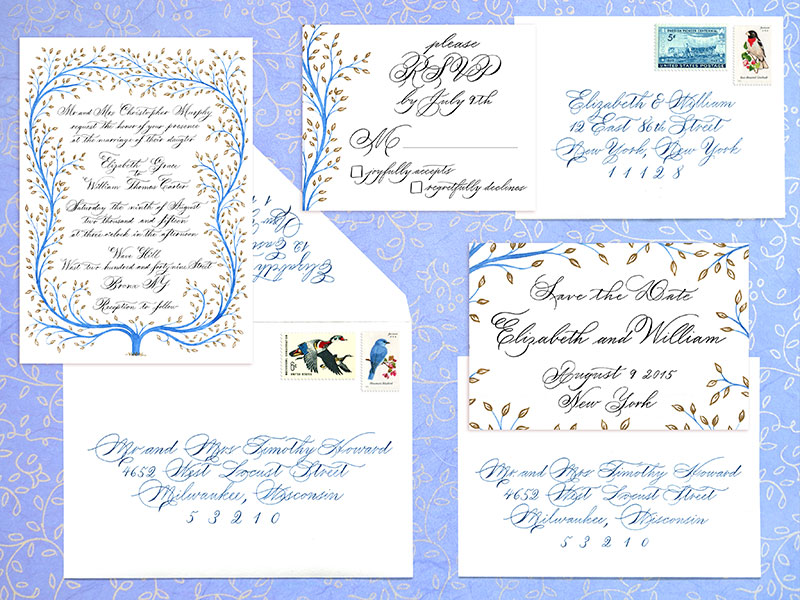 Mr and Mrs Christopher Murphy
request the honor of your presence
at the marriage of their daugter
Elizabeth Grace
to
William Thomas Carter
Saturday the ninth of August
two thousand and fifteen
at three o'clock in the afternoon
Wave Hill
West two hundred and forty nine Street
Bronx NY
Reception to follow
please
RSVP
by July 9th
M
joyfully accepts
regretfully declines
SWEDISH PIONEER CENTENNIAL
5¢
UNITED STATES POSTAGE
Elizabeth & Wylliam
12 East 86th Street
New York, New York
11128
Elizabeth
12 East
New
Save the Date
Elizabeth and William
August 9 2015
New York
Mr and Mrs Timothy Howard
4652 West Locust Street
Milwaukee, Wisconsin
53210
Mr and Mrs Timothy Howard
4652 West Locust Street
Milwaukee, Wisconsin
53210